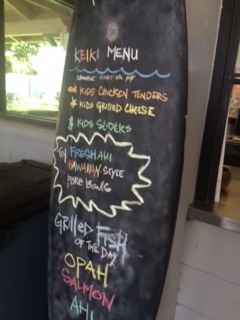 KEIKI MENU
KIDS CHICKEN TENDERS
KIDS GRILLED CHEESE
KIDS SLIDERS
TRY FRESH AHI
HAWAIIAN STYLE
POKE BOWLS
GRILLED FISH
OF THE DAY
OPAH
SALMON
AHI